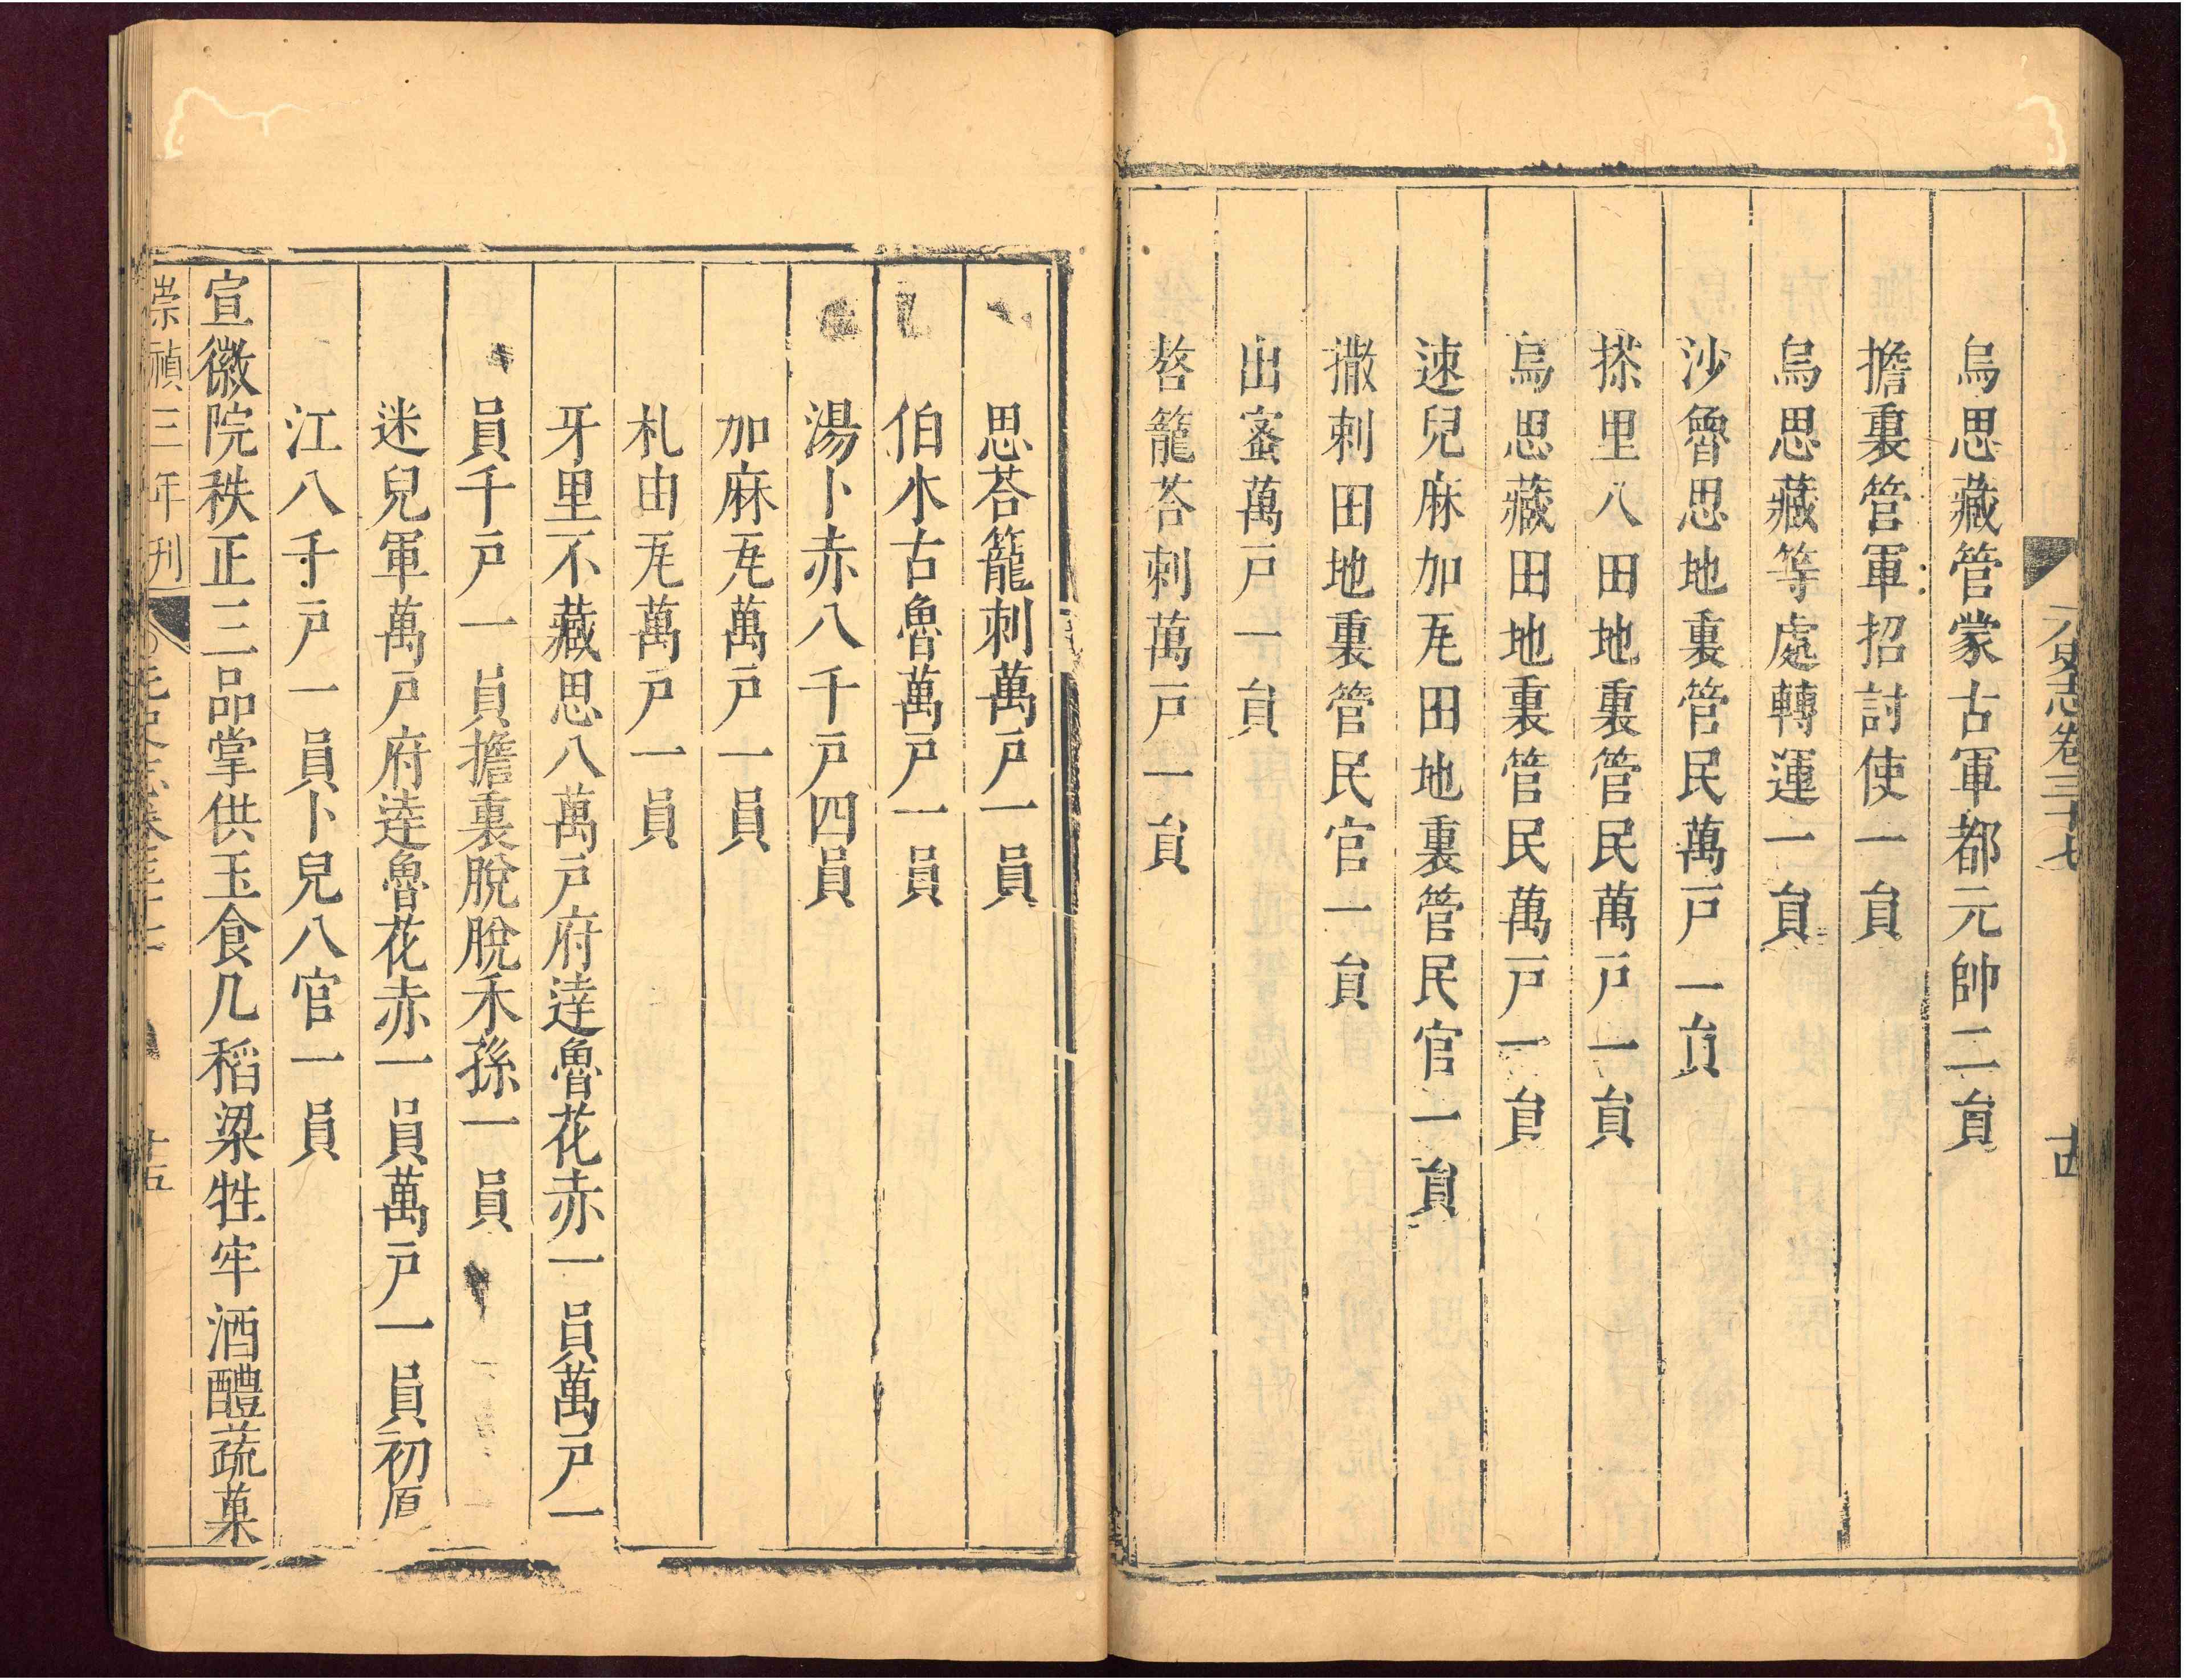 元史志卷三十七
古
烏思藏管蒙古軍都元帥二員
擔裏管軍招討使一員
烏思藏等處轉運一員
沙魯思地裏管民萬戸一員
搽里八田地裏管民萬戸一員
烏思藏田地裏管民萬戸一員
速兒麻加瓦田地裏管民官一員
撒刺田地裏管民官一員
出蜜萬戸一員
嗸籠荅刺萬戸一員
思荅籠刺萬戸一員
伯木古魯萬戸一員
湯卜赤八千戸四員
加麻瓦萬戸一員
札由瓦萬戸一員
牙里不藏思八萬戸府達魯花赤一員萬戸一
員千戸一員擔裏脫脫禾孫一員
迷兒軍萬戸府達魯花赤一員萬戸一員初厚
江八千戸一員卜兒八官一員
宣徽院秩正三品掌供玉食几稻粱牲牢酒醴蔬菓
崇禎三年刊
十五